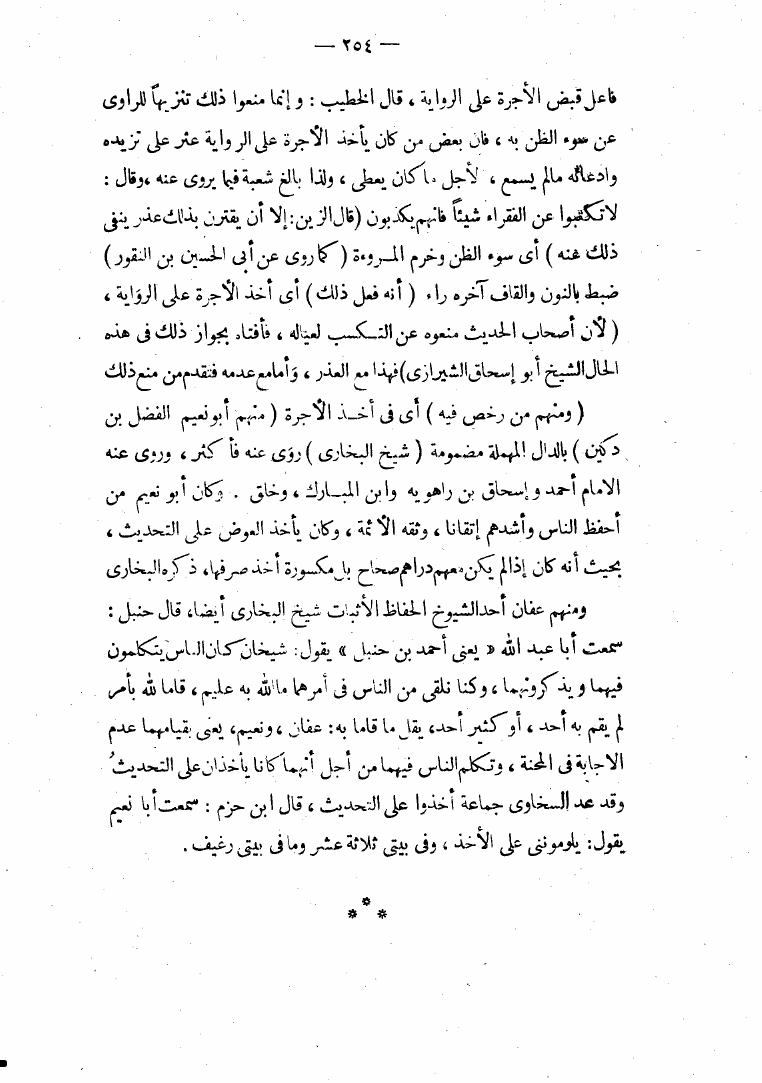 — ٢٥٤ —
فاعل قبض الأجرة على الرواية ، قال الخطيب : و إنما منعوا ذلك تنزيهاً للراوى
عن سوء الظن به ، فان بعض من كان يأخذ الأجرة على الرواية عثر على تزيده
وادعائه مالم يسمع ، لأجل ما كان يعطى ، ولذا بالغ شعبة فيما يروى عنه ،وقال :
لا تكتبوا عن الفقراء شيئاً فانهم يكذبون (قال الزين: إلا أن يقترن بذلك عذر ينفى
ذلك عنه ) أى سوء الظن وخرم المروءة ( كما روى عن أبى الحسين بن النقور )
ضبط بالنون والقاف آخره راء ( أنه فعل ذلك ) أى أخذ الأجرة على الرواية ،
( لأن أصحاب الحديث منعوه عن التكسب لعياله ، فأفتاه بجواز ذلك فى هذه
الحال الشيخ أبو إسحاق الشيرازى) فهذا مع العذر ، وأما مع عدمه فتقدم من منع ذلك
( ومنهم من رخص فيه ) أى فى أخذ الأجرة ( منهم أبو نعيم الفضل بن
دكين ) بالدال المهملة مضمومة ( شيخ البخارى ) روى عنه فأكثر ، وروى عنه
الامام أحمد و إسحاق بن راهويه وابن المبارك ، وخلق . وكان أبو نعيم من
أحفظ الناس وأشدهم إتقانا ، وثقه الأئمة ، وكان يأخذ العوض على التحديث ،
بحيث أنه كان إذا لم يكن معهم دراهم صحاح بل مكسورة أخذ صرفها، ذكره البخارى
ومنهم عفان أحد الشيوخ الحفاظ الأثبات شيخ البخارى أيضا، قال حنبل :
سمعت أبا عبد الله « يعنى أحمد بن حنبل » يقول: شيخان كان الناس يتكلمون
فيهما و يذكرونهما ، وكنا نلقى من الناس فى أمرهما ما الله به عليم ، قاما لله بأمر
لم يقم به أحد ، أو كثير أحد، يقل ما قاما به: عفان ،ونعيم، يعنى بقيامهما عدم
الاجابة فى المحنة ، وتكلم الناس فيهما من أجل أنهما كانا يأخذان على التحديث
وقد عد السخاوى جماعة أخذوا على التحديث ، قال ابن حزم : سمعت أبا نعيم
يقول: يلوموننى على الأخذ ، وفى بيتى ثلاثة عشر وما فى بيتى رغيف .
* * *